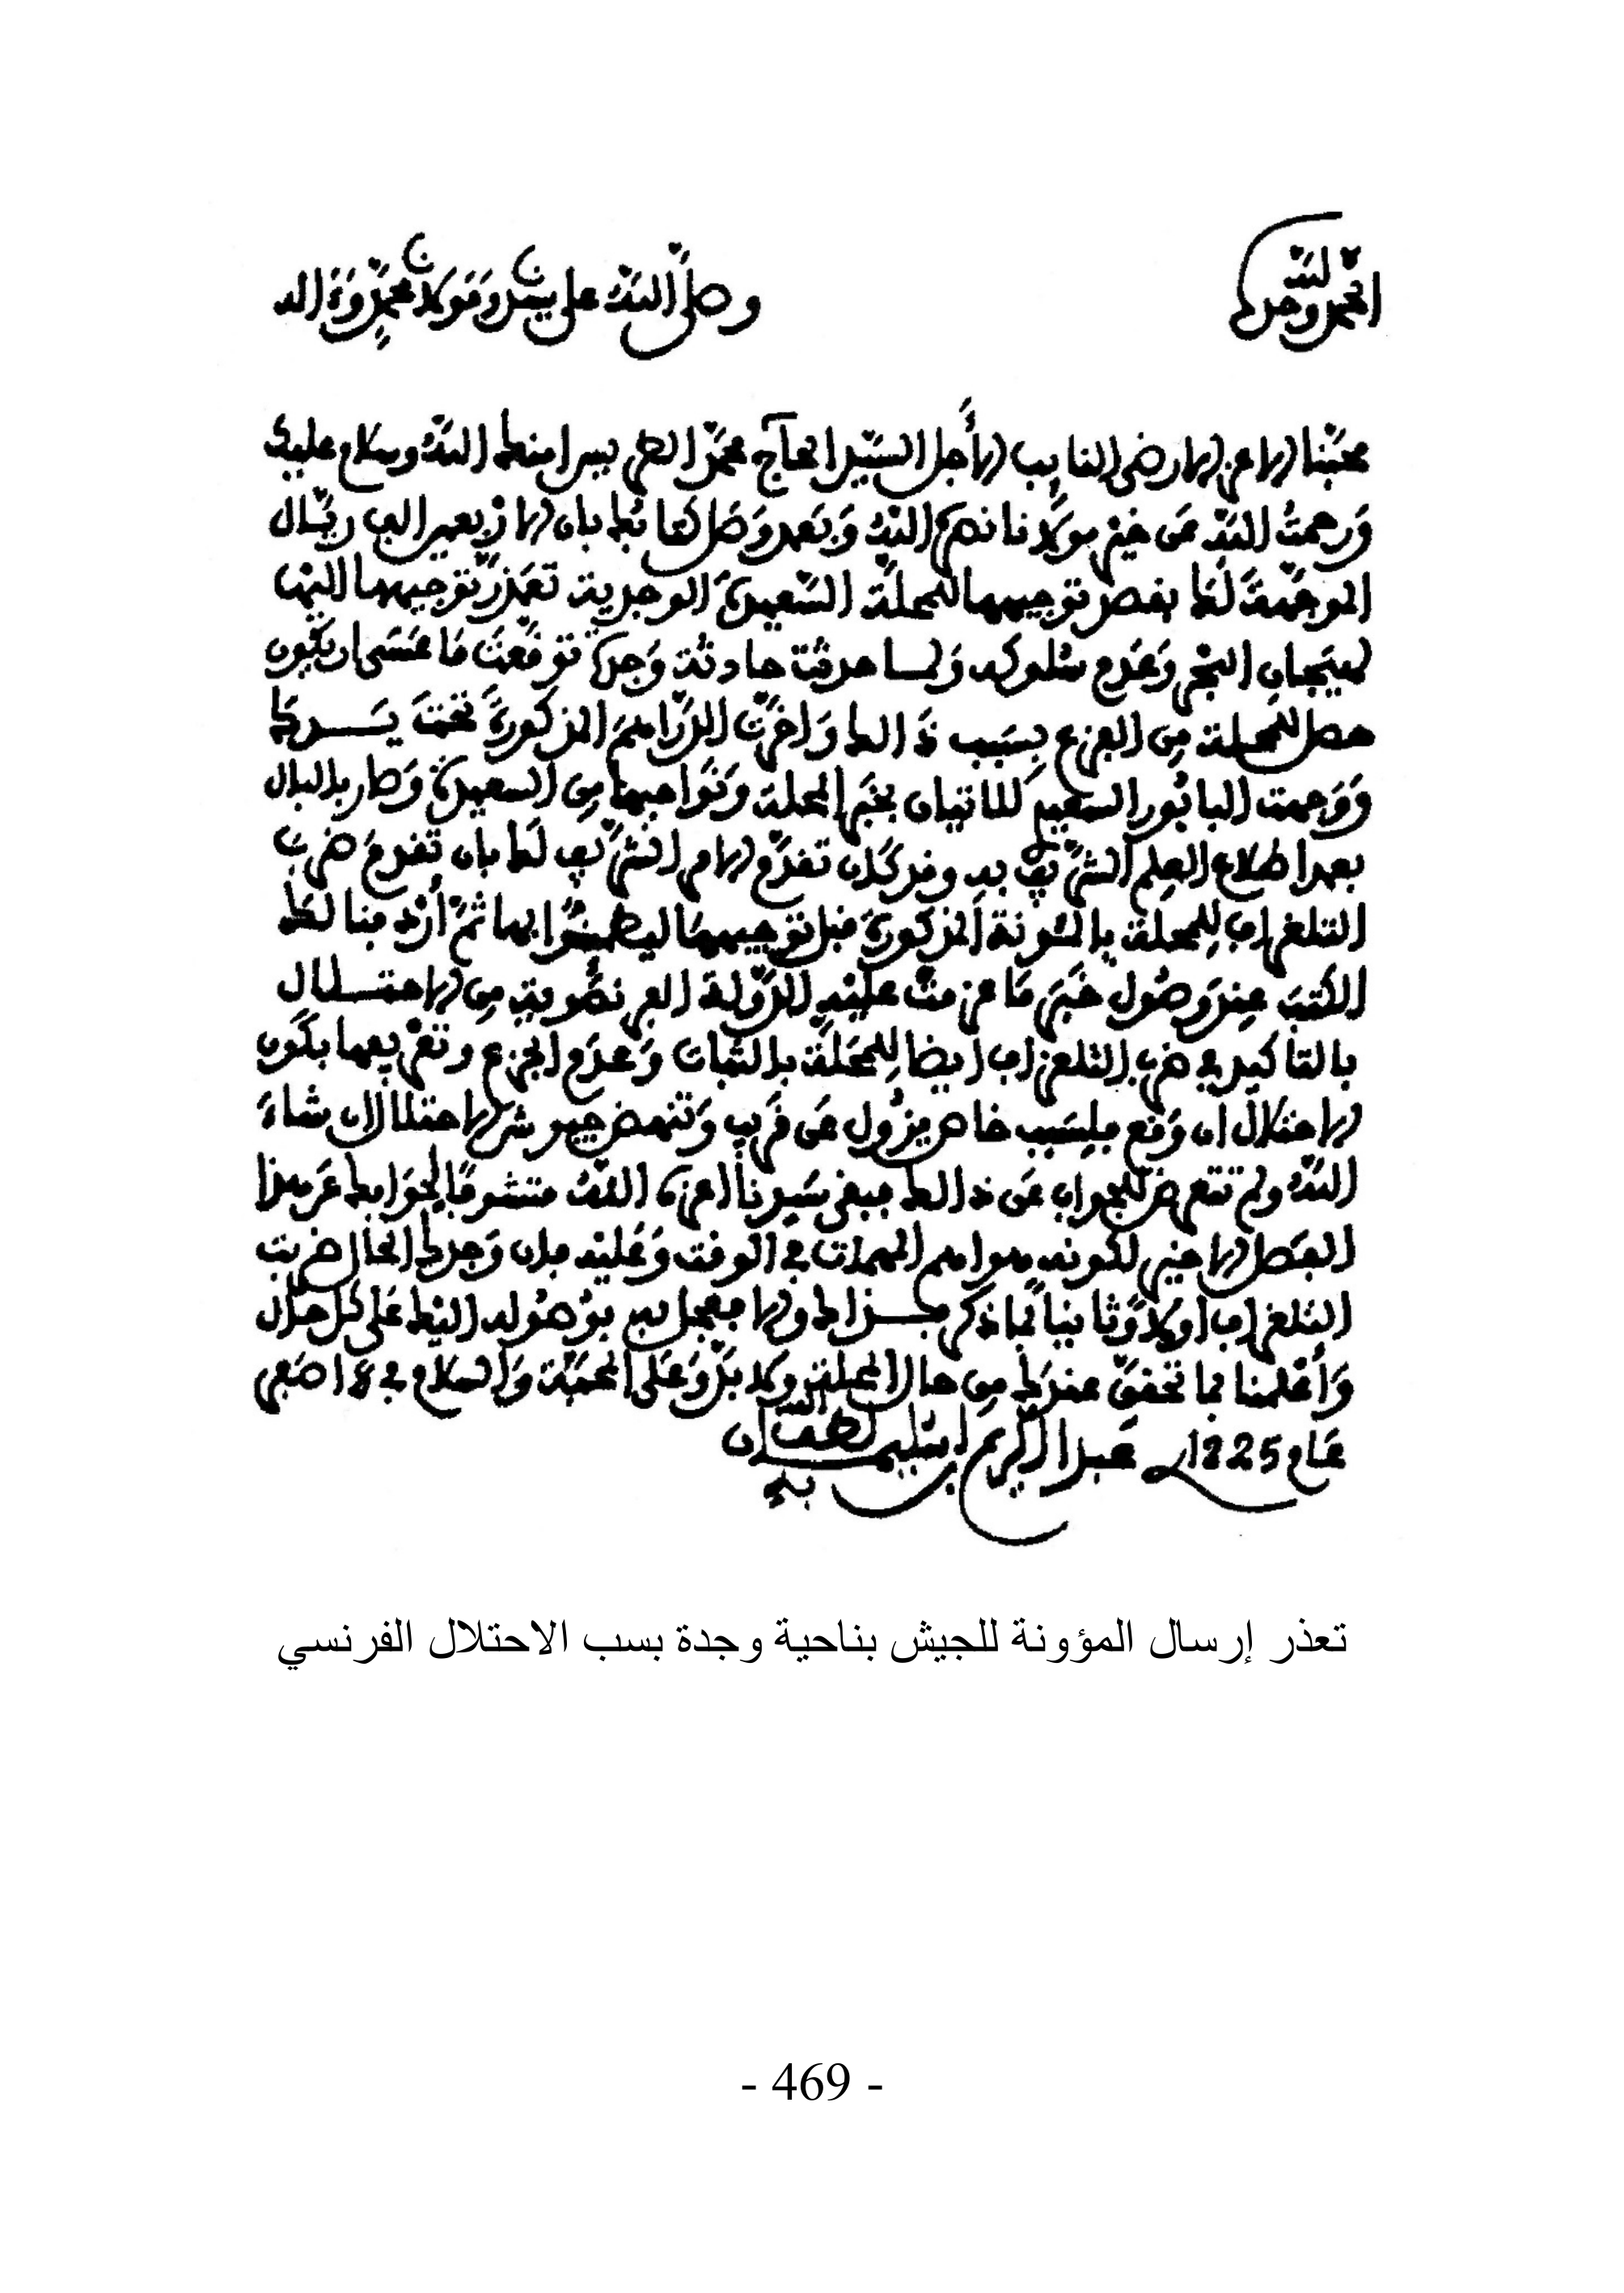 الحمد لله وحده
وصلى الله على سيدنا ومولانا محمد وءاله
محبنا الاعز الارضى النايب الأجل السيد الحآج محمد الطريس امنك الله وسلام عليك
ورحمت الله عن خير مولانا نصره الله وبعد وصل كتابك بان الاربعين الف ريال
الموجهة لك بقصد توجيهها للمحلة السعيدة الوجدية تعذر توجيهها اليها
لهيجان البحر وعدم سلوكه ولما حدثت حادثة وجدة توقعت ما عسى ان يكون
حصل للمحلة من الفزع بسبب ذالك واخرت الدراهم المذكورة تحت يدك
ووجهت البابور السعيد للاتيان بخبر المحلة ونواحيها من السعيدية وصار بالبال
بعد اطلاع العلم الشريف به وقد كان تقدم الامر الشريف لك بان تقدم ضرب
التلغراف للمحلة بالمئونة المذكورة قبل توجيهها ليطمئنوا بها ثم أزيد منا لك
الكتب عند وصول خبر ما عزمت عليه الدولة الفرنصوية من الاحتلال
بالتاكيد في ضرب التلغراف ايضا للمحلة بالثبات وعدم الجزع وتعريفها بكون
الاحتلال ان وقع فلسبب خاص يزول عن قريب وتنهض جيوش الاحتلال ان شاء
الله ولم تتعرض للجواب عن ذالك فبقي سيدنا اعزه الله متشوفا لجوابك عن هذا
الفصل الاخير لكونه هو اهم المهمات في الوقت وعليه فان وجدك الحال ضربت
التلغراف اولا وثانيا بما ذكر فذاك والا فعجل به بوصوله اليك على كل حال
وأعلمنا بما تحقق عندك من حال المحلة ولا بد وعلى المحبة والسلام في 8 صفر
عام 1325 عبد الكريم بن سليمان لطف الله به
تعذر إرسال المؤونة للجيش بناحية وجدة بسب الاحتلال الفرنسي
- 469 -